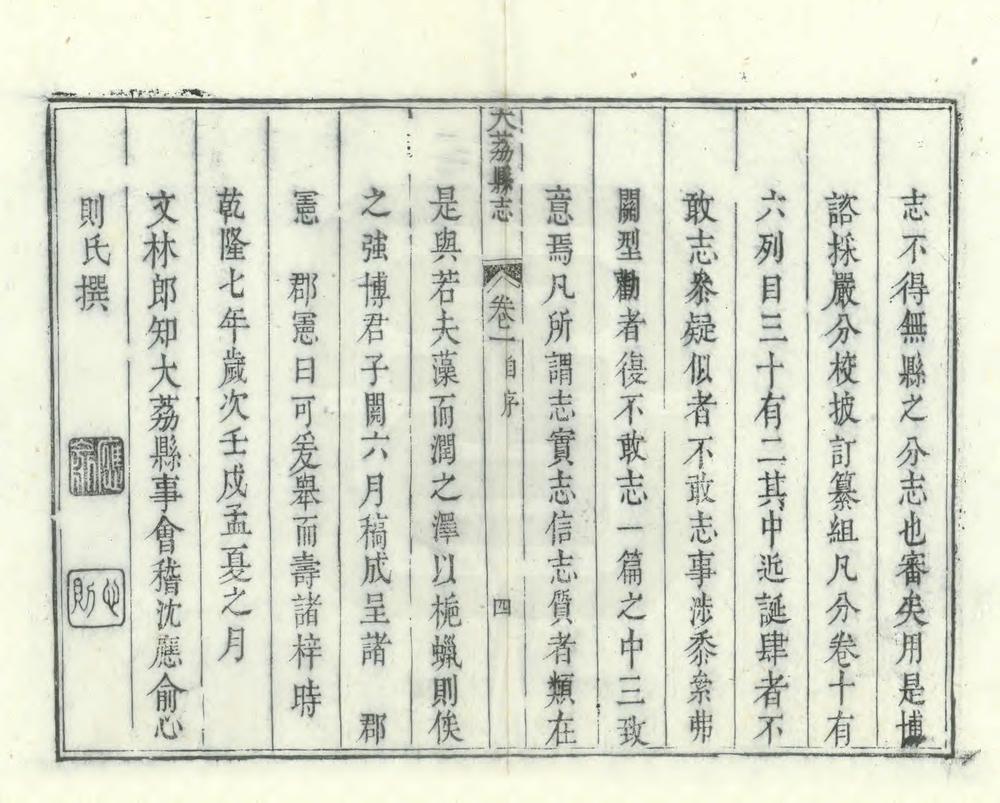 志不得無縣之分志也審矣用是博
諮採嚴分校披訂纂組凡分卷十有
六列目三十有二其中近誕肆者不
敢志叅疑似者不敢志事涉黍絫弗
關型勸者復不敢志一篇之中三致
意焉凡所謂志實志信志質者類在
大荔縣志
卷一
自序
四
是與若夫藻而潤之澤以梔蠟則俟
之強博君子閱六月稿成呈諸 郡
憲 郡憲曰可爰舉而壽諸梓時
乾隆七年歲次壬戌孟夏之月
文林郎知大荔縣事會稽沈應俞心
則氏撰
應俞
心則